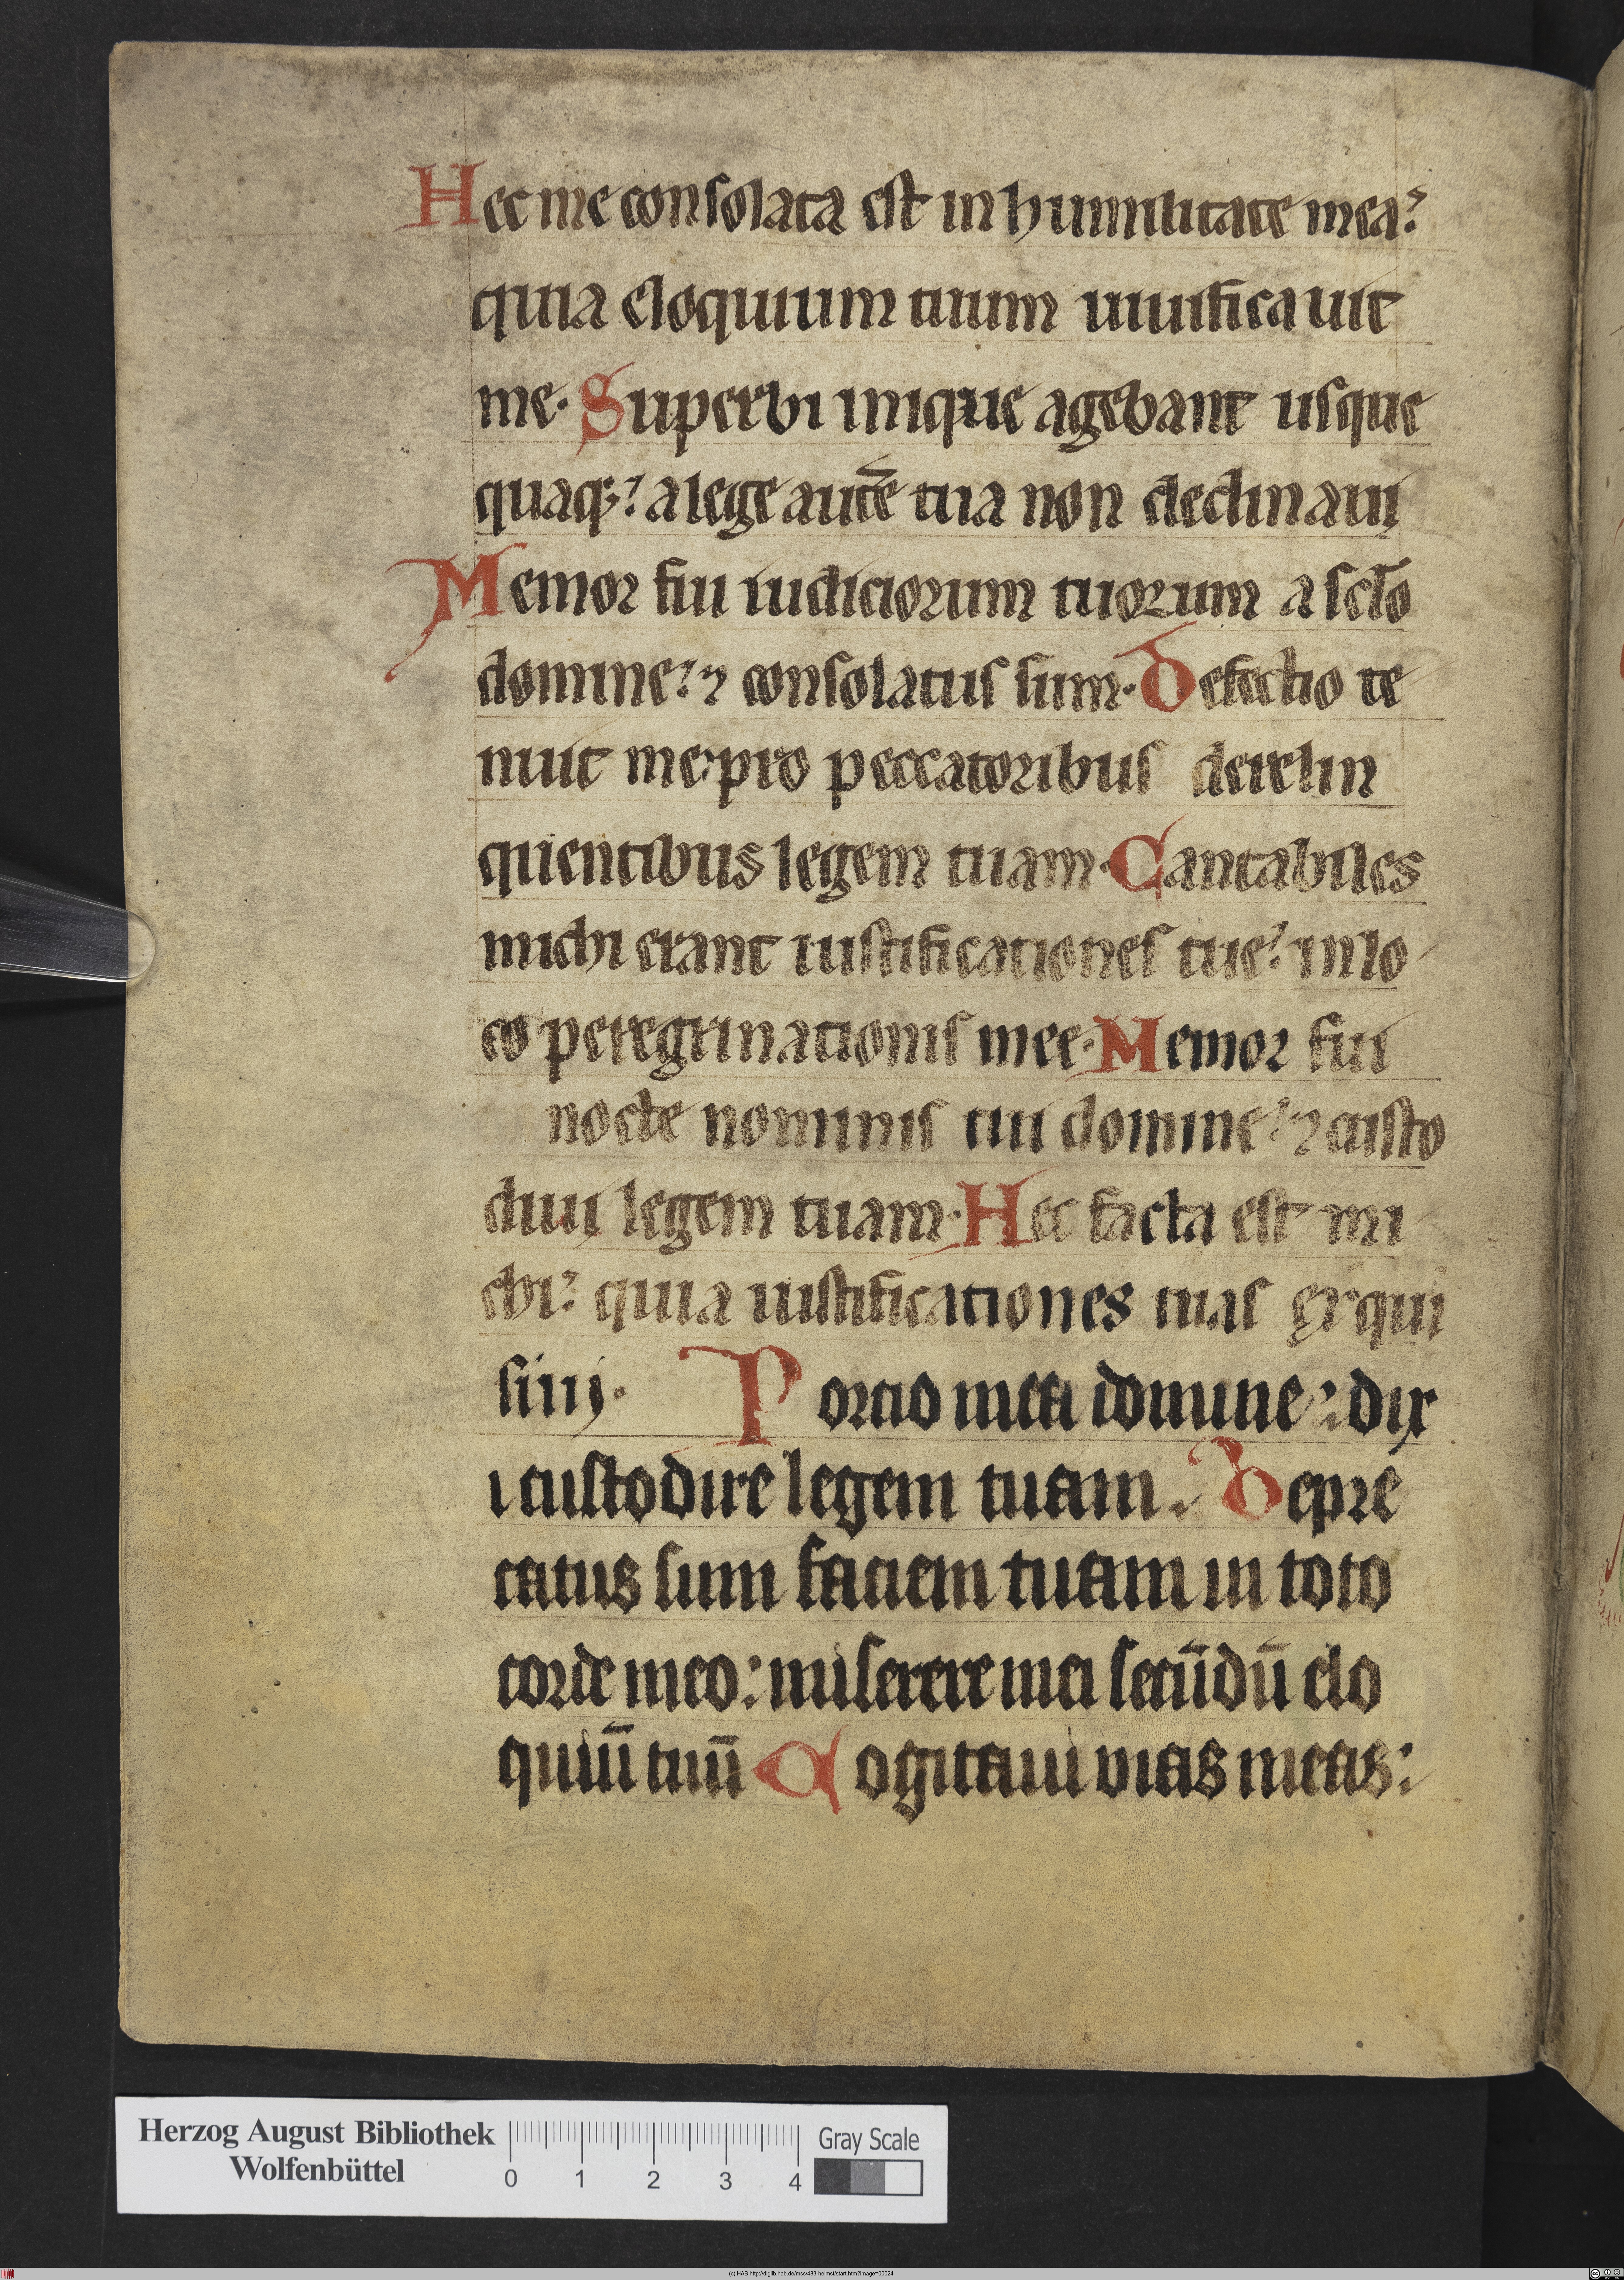 Hec me consolata est in humilitate mea:
quia eloquium tuum uiuificauit
me. Superbi inique agebant usque
quaq;: a lege autē tua non declinaui
Memor fui iudiciorum tuorum a sc̄lo
domine: ⁊ consolatus sum. Defectio te
nuit me: pro peccatoribus derelin
quentibus legem tuam. Cantabiles
michi erant iustificationes tue: in lo
co peregrinationis mee. Memor fui
nocte nominis tui domine: ⁊ custo
diui legem tuam. Hec facta est mi
chi: quia iustificationes tuas exqui
siui. Portio mea domine: dix
i custodire legem tuam. Depre
catus sum faciem tuam in toto
corde meo: miserere mei secūdū elo
quiū tuū Cogitaui vias meas:
Herzog August Bibliothek
Wolfenbüttel
0 1 2 3 4
Gray Scale
(c) HAB http://diglib.hab.de/mss/483-helmst/start.htm?image=00024